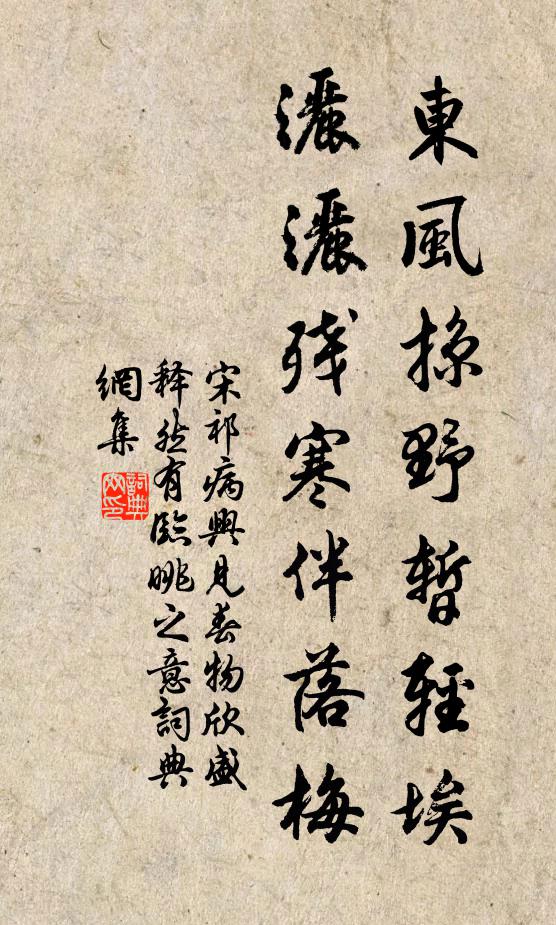 東風掠野暫輕埃
灑灑残寒伴落梅
宋祁病興見春物欣盛
释然有臨眺之意詞典
網集
詞典
网印